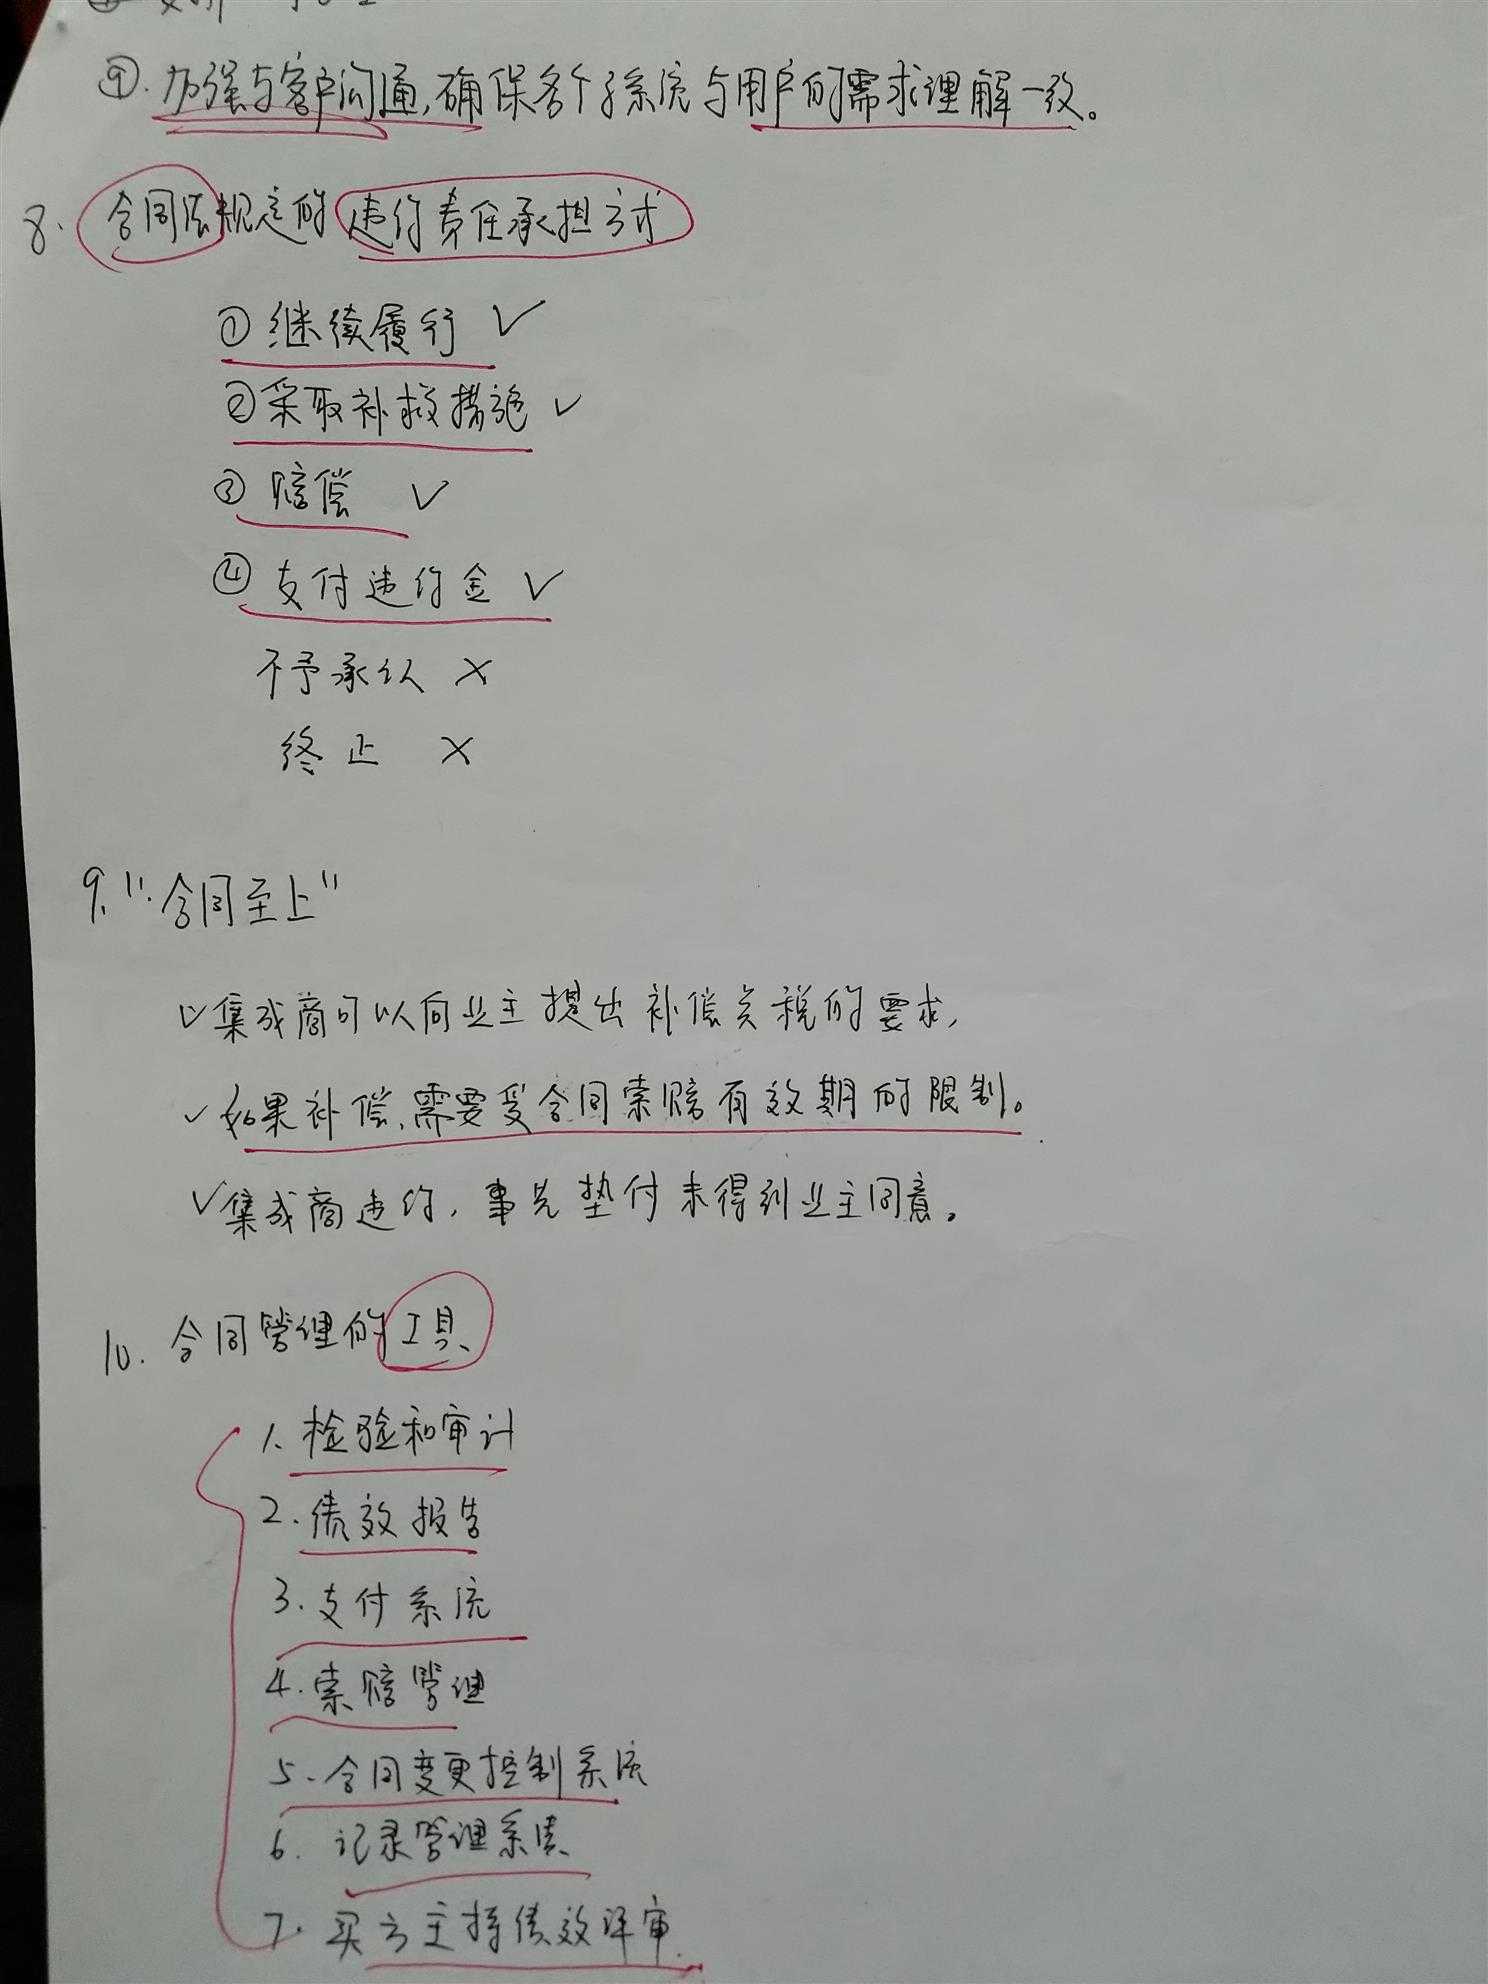 ④. 加强与客户沟通,确保各个子系统与用户的需求理解一致。
8. 合同法规定的违约责任承担方式
① 继续履行 ✓
② 采取补救措施 ✓
③ 赔偿 ✓
④ 支付违约金 ✓
不予承认 ×
终止 ×
9. "合同至上"
✓ 集成商可以向业主提出补偿关税的要求,
✓ 如果补偿,需要受合同索赔有效期的限制。
✓ 集成商违约,事先垫付未得到业主同意。
10. 合同管理的工具
1. 检验和审计
2. 绩效报告
3. 支付系统
4. 索赔管理
5. 合同变更控制系统
6. 记录管理系统
7. 买方主持绩效评审.